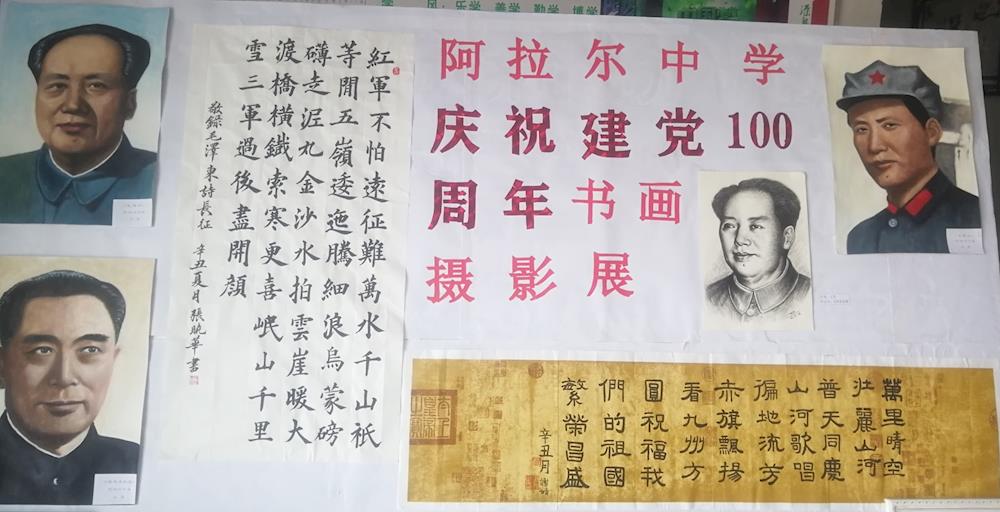 风：乐学 善学 勤学 博学
阿拉尔中学
庆祝建党100
周年书画
摄影展
紅軍不怕遠征難萬水千山衹
等閒五嶺逶迤騰細浪烏蒙磅
礴走泥丸金沙水拍雲崖暖大
渡橋橫鐵索寒更喜岷山千里
雪三軍過後盡開顏
敬錄毛澤東詩長征 辛丑夏月張曉華書
萬里晴空
壯麗山河
普天同慶
山河歌唱
徧地流芳
赤旗飄揚
看九州方
圓祝福我
們的祖國
繁榮昌盛
辛丑月